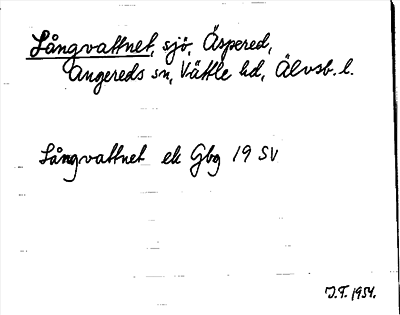 Långvattnet, sjö, Äspered,
Angereds sn, Vättle hd, Älvsb. l.
Långvattnet ek Gbg 19 SV
J.F. 1954.